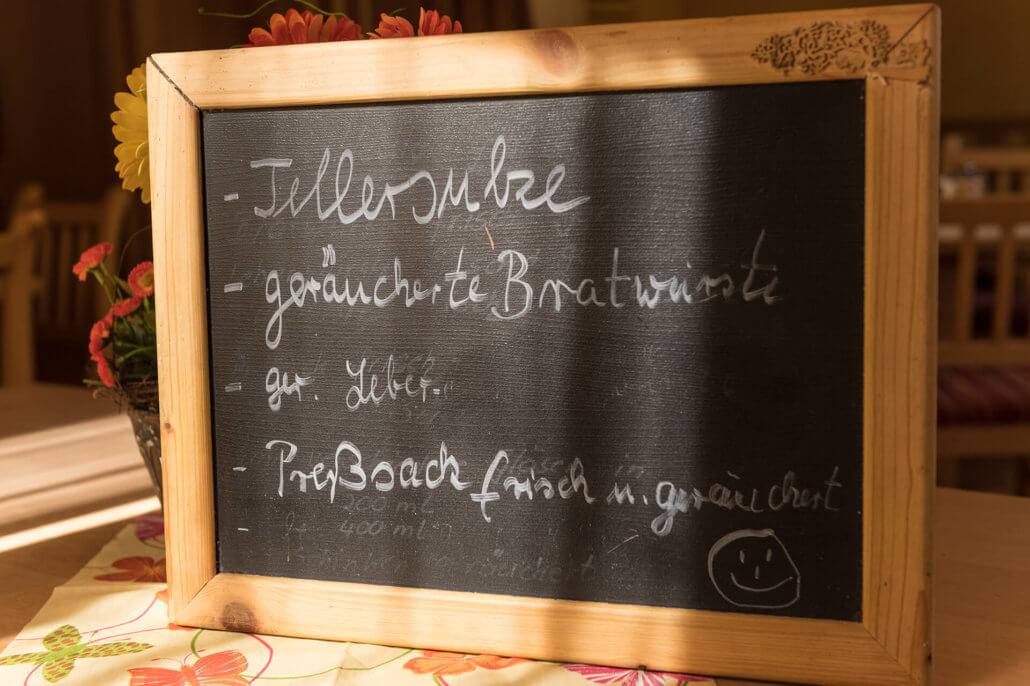 - Tellersulze
- geräucherte Bratwürste
- ger. Leber-
- Preßsack frisch u. geräuchert
-
200 ml
400 ml